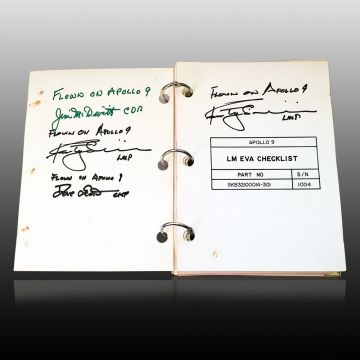 FLOWN ON APOLLO 9
Jim McDivitt CDR
FLOWN ON APOLLO 9
LMP
FLOWN ON APOLLO 9
Dave Scott CMP
FLOWN ON APOLLO 9
LMP
APOLLO 9
LM EVA CHECKLIST
PART NO S/N
SKB32100014-301 1004